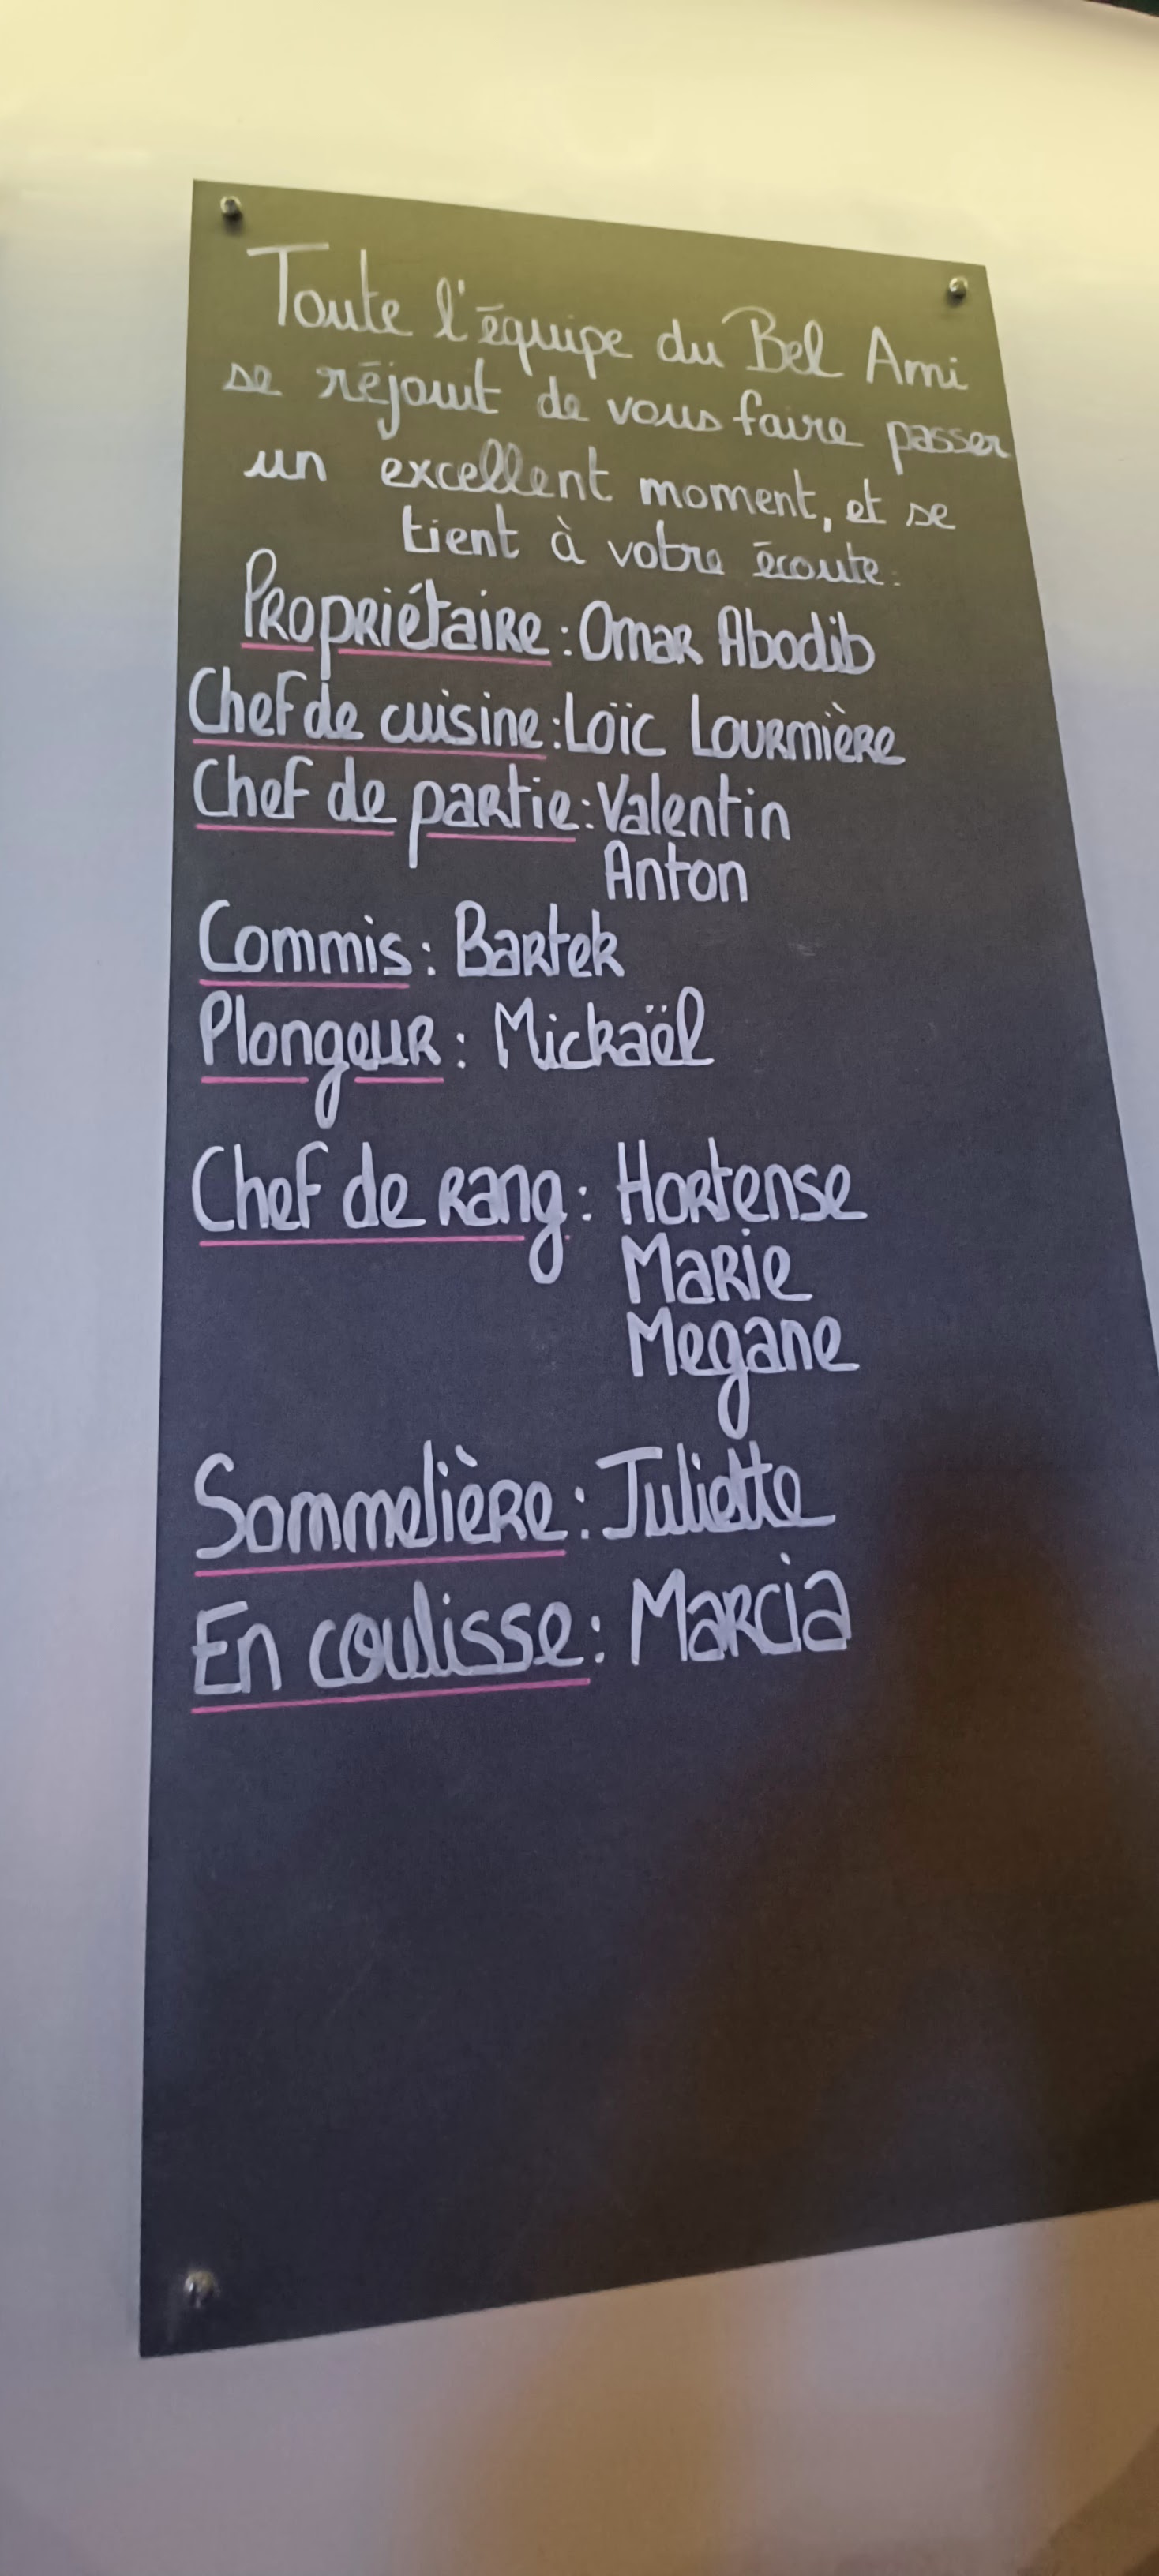 Toute l'équipe du Bel Ami
se réjouit de vous faire passer
un excellent moment, et se
tient à votre écoute.
Propriétaire : Omar Abodib
Chef de cuisine : Loïc Lourmière
Chef de partie : Valentin
Anton
Commis : Bartek
Plongeur : Mickaël
Chef de rang : Hortense
Marie
Megane
Sommelière : Juliette
En coulisse : Marcia